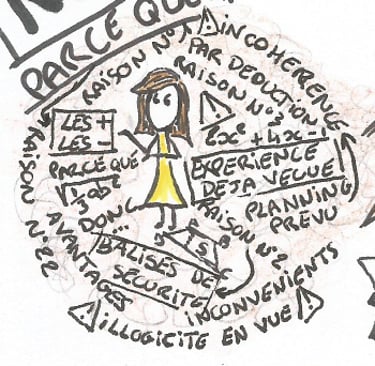 PARCE QUE
RAISON N°1
⚠ INCOHERENCE
PAR DEDUCTION
RAISON N°3
LES +
LES -
2x² + 4x - 1
PARCE QUE
EXPERIENCE
DEJA VECUE
DONC
...
PLANNING
PREVU
RAISON N°2
BALISES DE
SECURITE
RAISON N°22
AVANTAGES
INCONVENIENTS
⚠ ILLOGICITE EN VUE ⚠